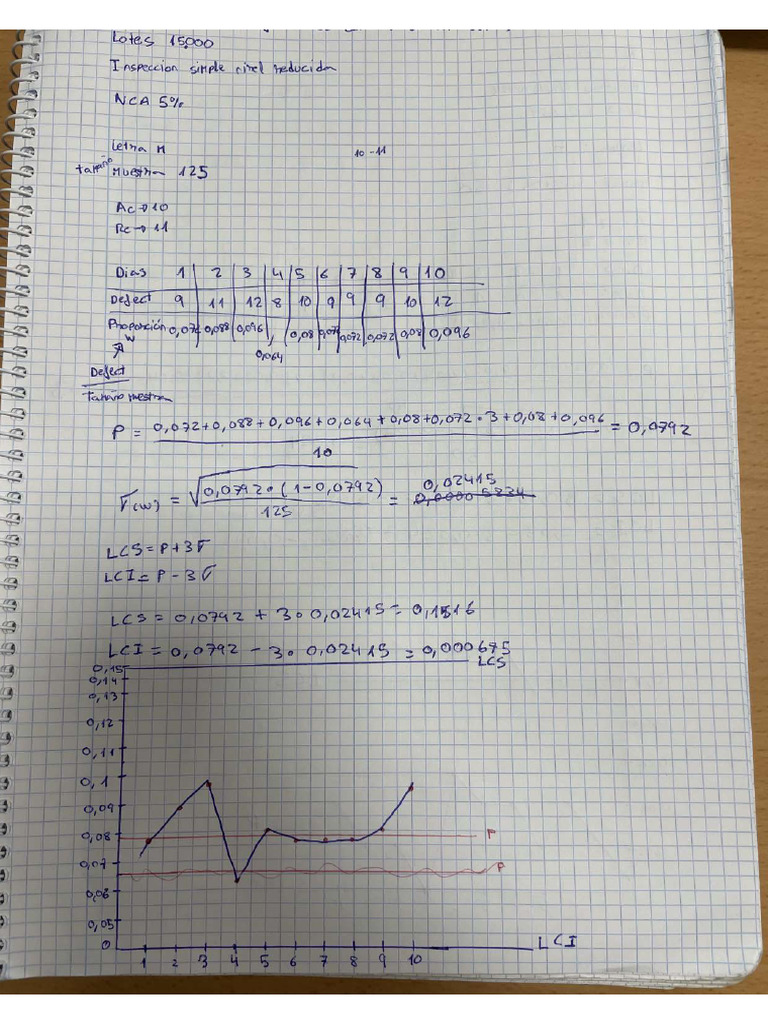 Lotes 15000
Inspeccion simple nivel reducida
NCA 5%
Letra M
10-11
tamaño Muestra 125
Ac→10
Rc→11
Dias 1 2 3 4 5 6 7 8 9 10
Defect 9 11 12 8 10 9 9 9 10 12
Proporción 0,072 0,088 0,096 , 0,08 0,072 0,072 0,072 0,08 0,096
w
0,064
Defect
Tamaño muestra
P = 0,072+0,088+0,096+0,064+0,08+0,072·3+0,08+0,096 = 0,0792
10
σ(w) = √0,0792·(1-0,0792) = 0,02415
125
LCS = P+3σ
LCI = P-3σ
LCS = 0,0792 + 3·0,02415 = 0,1516
LCI = 0,0792 - 3·0,02415 = 0,000675
0,15 LCS
0,14
0,13
0,12
0,11
0,1
0,09
0,08 P
0,07 P
0,06
0,05
0 LCI
1 2 3 4 5 6 7 8 9 10